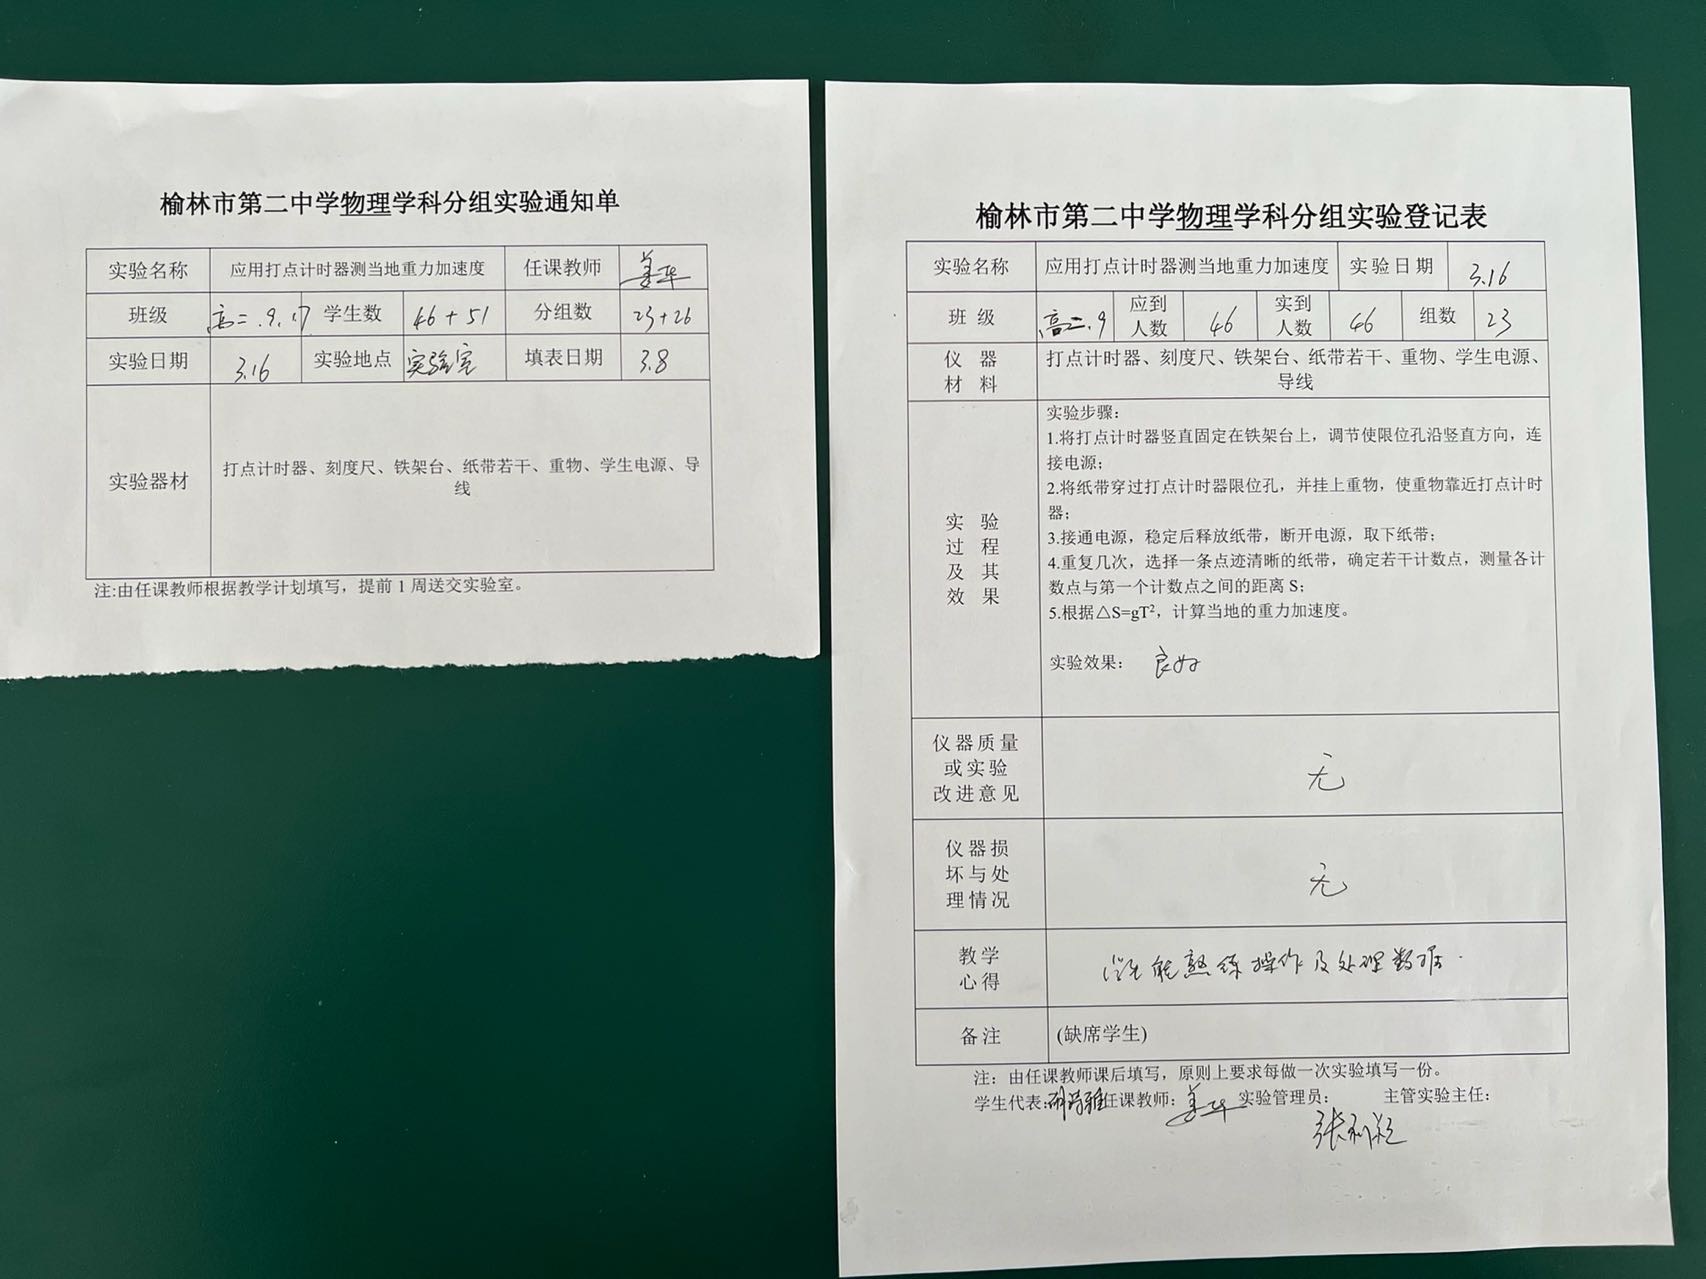 榆林市第二中学物理学科分组实验通知单
实验名称 应用打点计时器测当地重力加速度 任课教师 姜华
班级 高二.9.17 学生数 46+51 分组数 23+26
实验日期 3.16 实验地点 实验室 填表日期 3.8
实验器材 打点计时器、刻度尺、铁架台、纸带若干、重物、学生电源、导
线
注:由任课教师根据教学计划填写，提前 1 周送交实验室。
榆林市第二中学物理学科分组实验登记表
实验名称 应用打点计时器测当地重力加速度 实验日期 3.16
班级 高二.9 应到人数 46 实到人数 46 组数 23
仪器材料 打点计时器、刻度尺、铁架台、纸带若干、重物、学生电源、
导线
实验过程及其效果
实验步骤：
1.将打点计时器竖直固定在铁架台上，调节使限位孔沿竖直方向，连
接电源；
2.将纸带穿过打点计时器限位孔，并挂上重物，使重物靠近打点计时
器；
3.接通电源，稳定后释放纸带，断开电源，取下纸带；
4.重复几次，选择一条点迹清晰的纸带，确定若干计数点，测量各计
数点与第一个计数点之间的距离 S；
5.根据△S=gT²，计算当地的重力加速度。
实验效果： 良好
仪器质量
或实验
改进意见 无
仪器损
坏与处
理情况 无
教学
心得 学生能熟练操作及处理数据.
备注 (缺席学生)
注：由任课教师课后填写，原则上要求每做一次实验填写一份。
学生代表: 任课教师: 姜华 实验管理员: 主管实验主任: